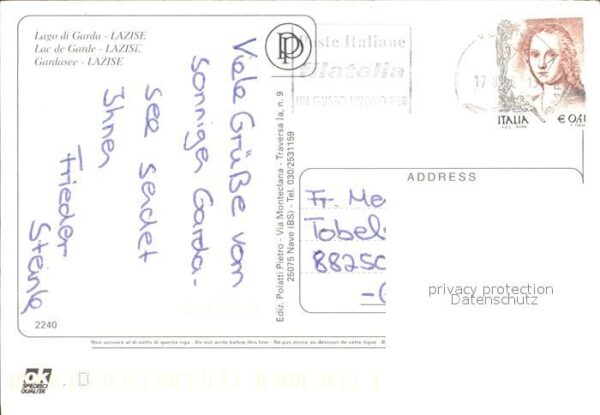 Lago di Garda - LAZISE
Lac de Garde - LAZISE
Gardasee - LAZISE
Viele Grüße vom
sonnigen Garda-
see sendet
Ihnen
Frieder
Steinle
2240
Ediz. Poiatti Pietro - Via Monteclana - Traversa Ia, n. 9
25075 Nave (BS) - Tel. 030/2531159
PP
Poste Italiane
filatelia
UN GUSTO NUOVO PER
17
ITALIA
€ 0,41
ADDRESS
Fr. Me
Tobel
8825
privacy protection
Datenschutz
Non scrivere al di sotto di questa riga - Do not write below this line - Ne pas écrire au dessous de cette ligne - B
OK
SPEDISCI
QUALITÀ